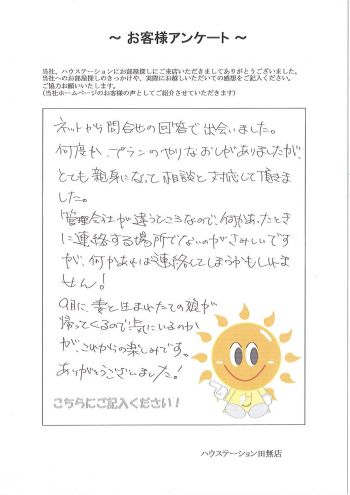 ～ お客様アンケート ～
当社、ハウステーションにお部屋探しにご来店いただきましてありがとうございました。
当社へのお部屋探しのきっかけや、実際にお越しいただいての感想をご記入ください。
ご協力お願いいたします。
(当社ホームページのお客様の声としてご紹介させていただきます)
ネットから問合せの回答で出会いました。
何度か、プランのやりなおしがありましたが、
とても親身になって相談と対応して頂きま
した。
管理会社が違うところなので、何かあったとき
に連絡する場所でないのがさみしいです
が、何かあれば連絡してしまうかもしれま
せん!
9月に、妻と生まれたての娘が
帰ってくるので気にいるのか
が、これからの楽しみです。
ありがとうございました!
こちらにご記入ください!
ハウステーション田無店